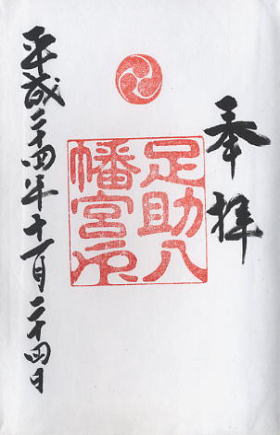 奉拝
足助八
幡宮印
平成二十四年十一月二十四日